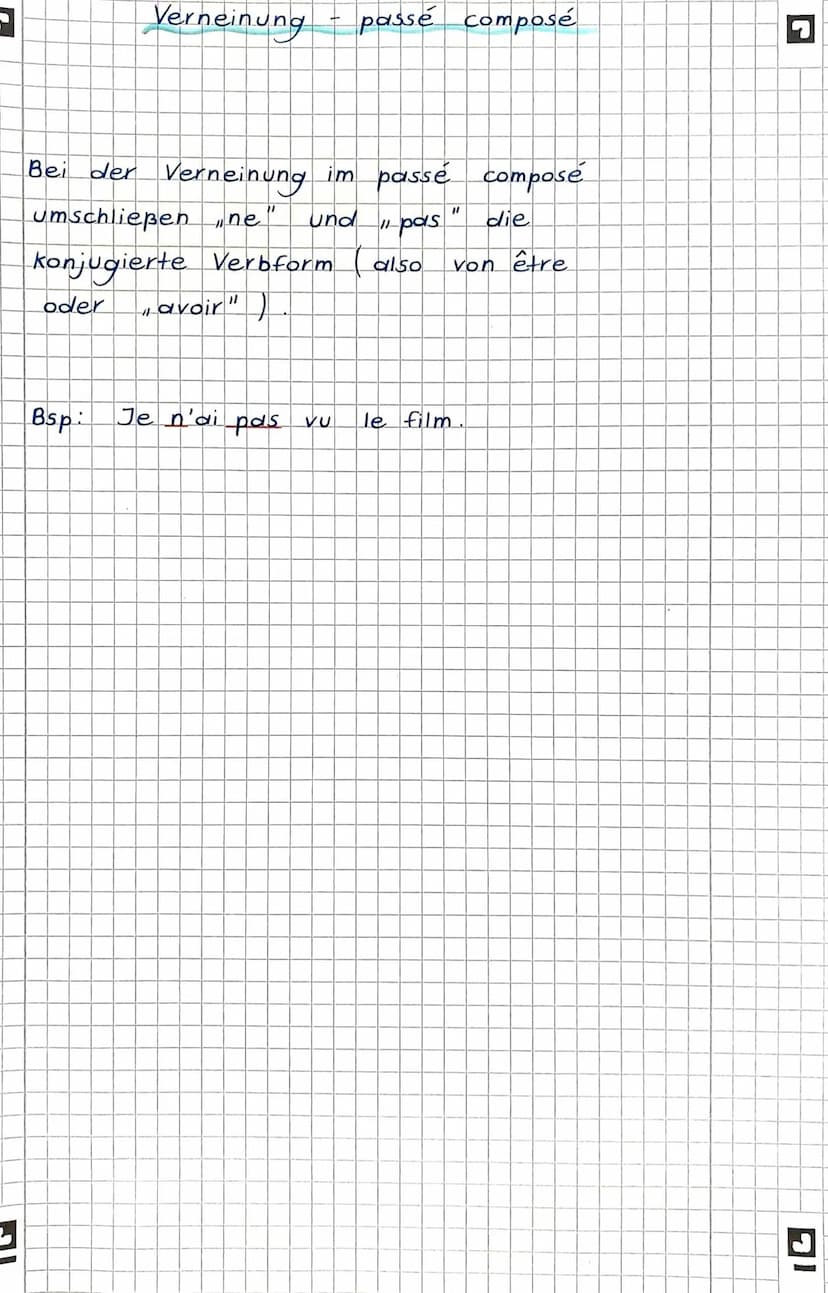 Verneinung - passé composé
Bei der Verneinung im passé composé
umschließen „ne" und „pas" die
konjugierte Verbform (also von être
oder „avoir").
Bsp: Je n'ai pas vu le film.